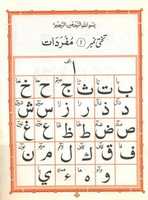 بسم الله الرحمن الرحيم
تختی نمبر (۱) مفردات
ا
ب ت ث ج ح خ
د ذ ر ز س ش
ص ض ط ظ ع غ
ف ق ك ل م ن
و ه ء ي